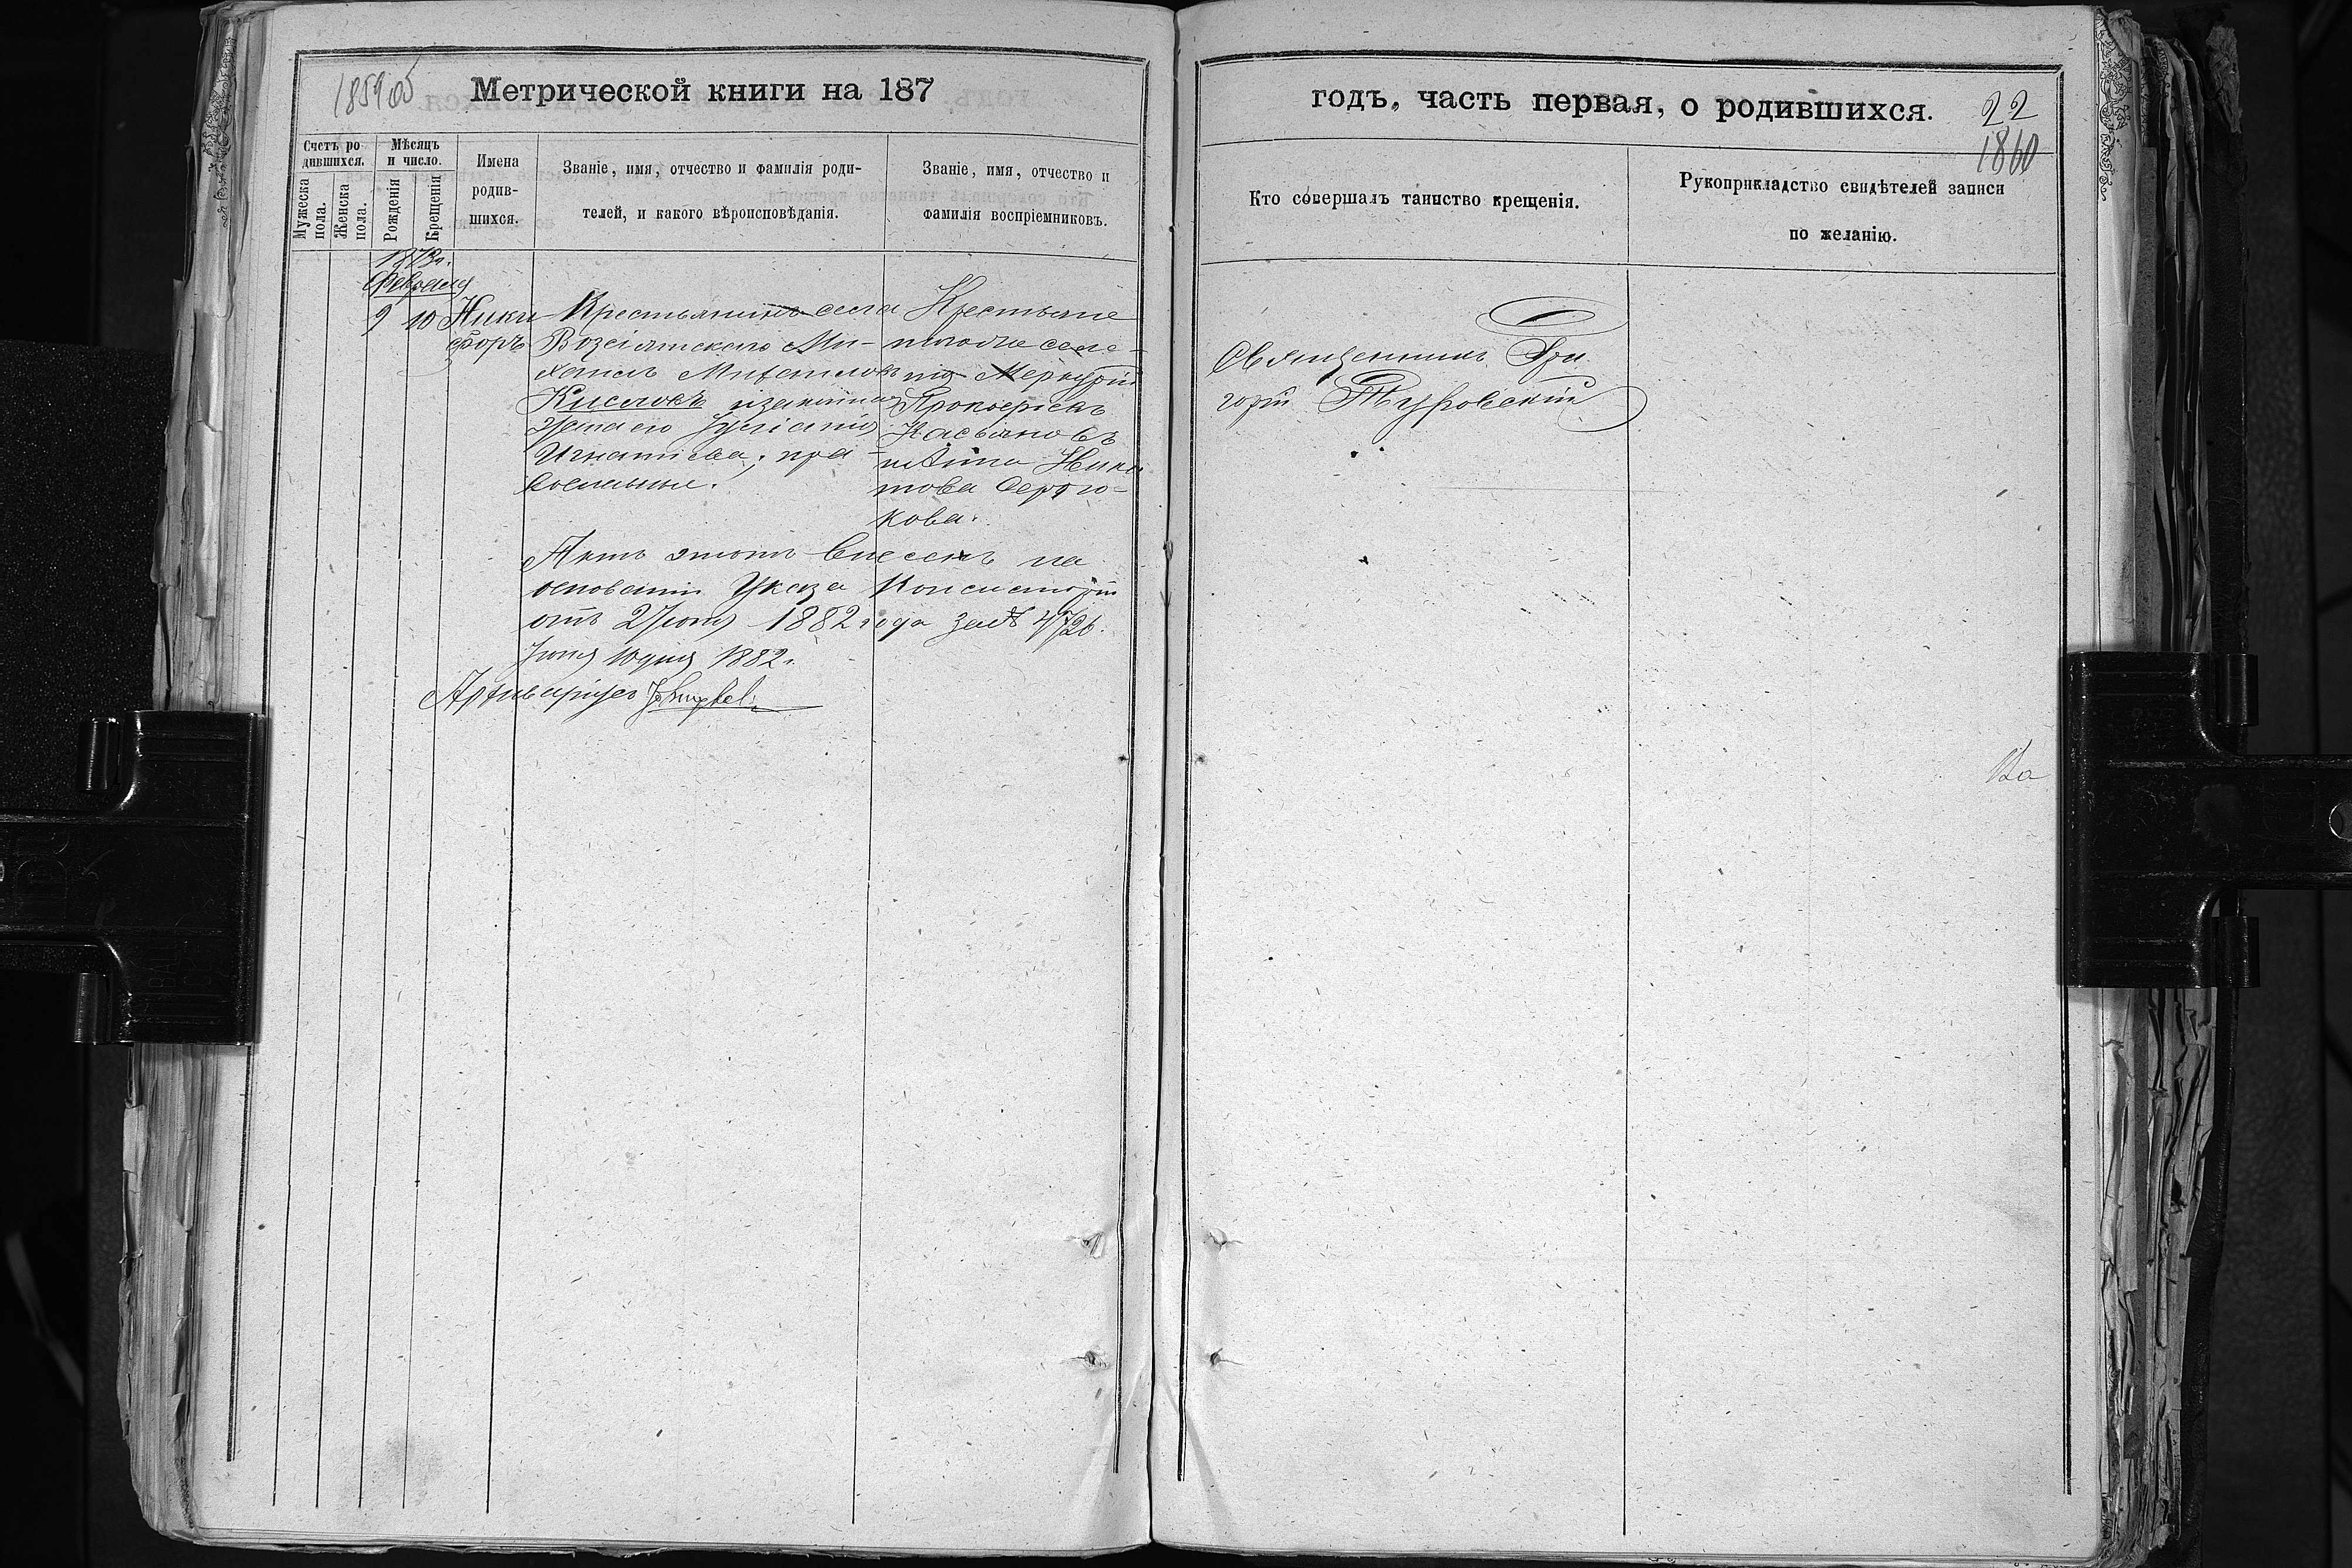 185905
Метрической книги на 187
Счетъ ро
дившихся.
Мужеска
пола.
Женска
пола.
Мѣсяцъ
и число.
Рожденія
Крещенія
Имена
родив-
шихся.
Званіе, имя, отчество и фамилія роди-
телей, и какого вѣроисповѣданія.
Званіе, имя, отчество и
фамилія воспріемниковъ.
1873 г.
Февраля
9 10
Ники
форъ
Крестьянинъ села
Возсіятскаго Ми-
хаилъ Михаиловъ
Киселовъ и законная
жена его Іуліанія
Игнатиева; пра-
вославные.
Крестьяне
тогоже селе-
нія Меркурій
Прокофіевъ
Касьяновъ
и Анна Ники
това
кова.
Актъ этотъ внесенъ на
основаніи Указа Консисторіи
отъ 2 Іюня 1882 года за № 4726.
Іюня 10 дня 1882 г.
Архиваріусъ
годъ, часть первая, о родившихся.
22
1860
Кто совершалъ таинство крещенія.
Рукоприкладство свидѣтелей записи
по желанію.
Священникъ Гри
горій Туровскій